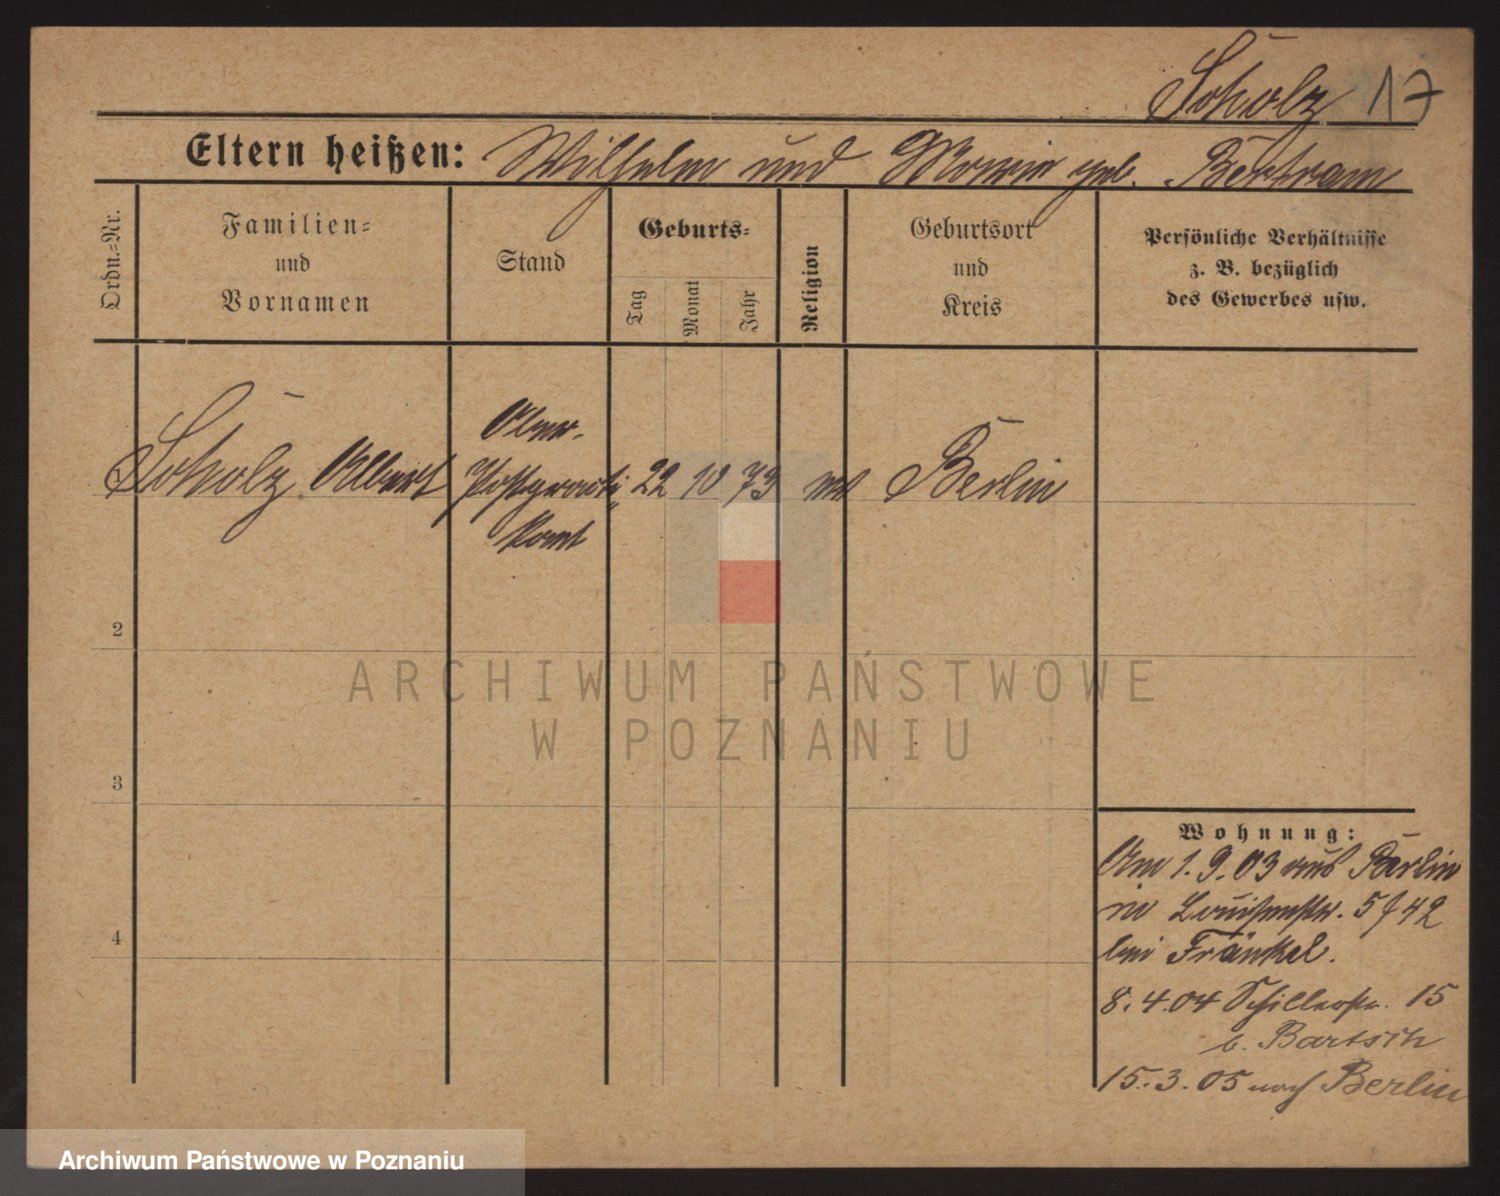 Scholz 17
Eltern heißen: Wilhelm und Marie geb. Bertram
Ordn.-Nr.
Familien-
und
Vornamen
Stand
Geburts-
Tag
Monat
Jahr
Religion
Geburtsort
und
Kreis
Persönliche Verhältnisse
z. B. bezüglich
des Gewerbes usw.
Ober-
1 Scholz Albert Postpracti- 22 10 73 ev Berlin
kant
2
3
4
Wohnung:
Am 1.9.03 aus Berlin
Louisenstr. 5
bei Fränkel.
8.4.04 Schillerstr. 15
b. Bartsch
15.3.05 nach Berlin
ARCHIWUM PAŃSTWOWE
W POZNANIU
Archiwum Państwowe w Poznaniu